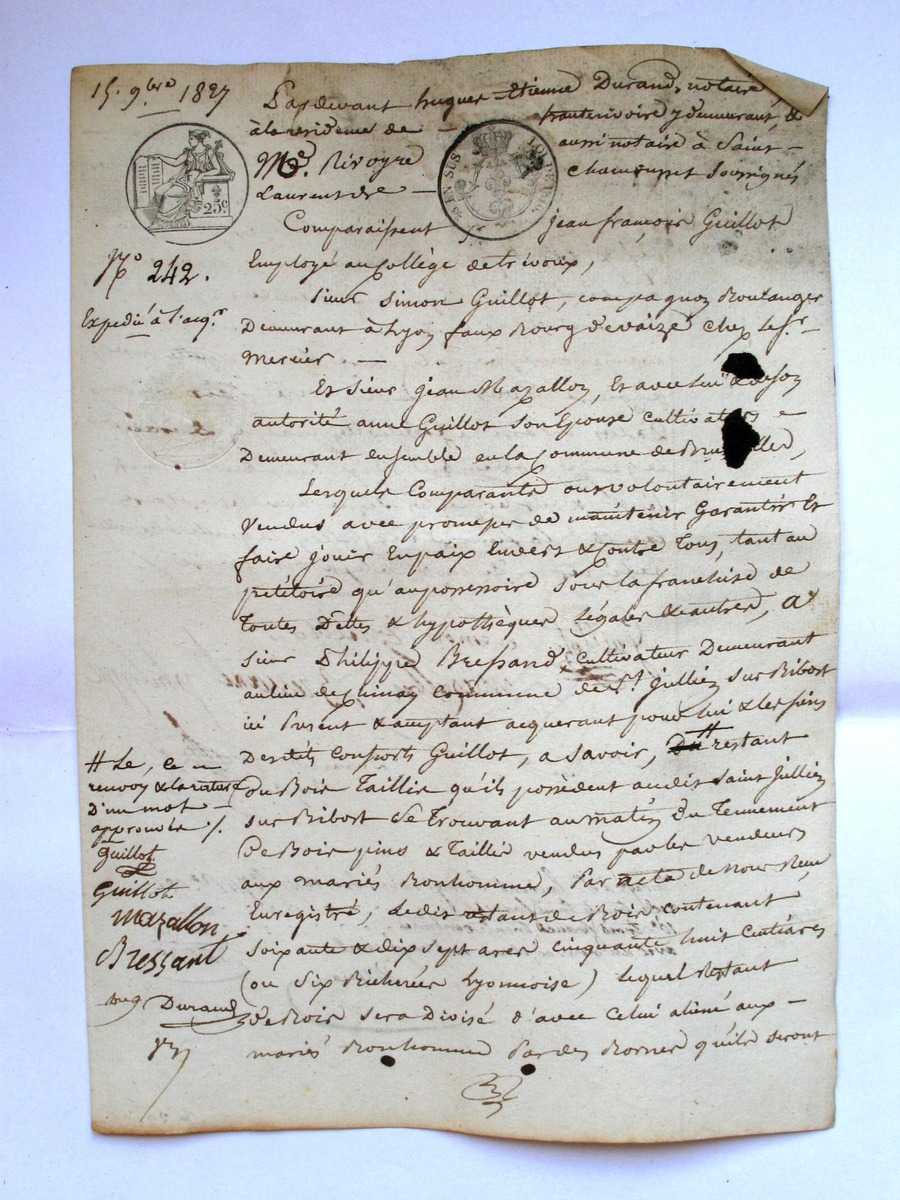 15. 9bre 1827
Pardevant hugues Etienne Durand, notaire
à la residence de frontenivoire y demeurant, &
Me. Rivoyre aussi notaire à Saint-
Laurent de Chamousset soussignés
25c
Comparaissent jean françois Guillot
No 242.
Employé au Collège de trévoux,
Expedié à l'acqr
Sieur Simon Guillot, compagnon Boulanger
Demeurant à Lyon faux Bourg de vaize chez le Sr
Mercier.
Et Sieur jean Mazallon, Et avec lui & de son
autorité anne Guillot son Epouse cultivateurs
Demeurant ensemble en la Commune de
Lesquels Comparants ont volontairement
Vendus avec promesse de maintenir Garantir Et
faire jouir En paix Envers & Contre Tous, tant au
pétitoire qu'au possessoire sous la franchise de
Toutes Dettes & hypothèques Légales & autres, A
Sieur Philippe Bressand, cultivateur Demeurant
au lieu de commune de St. julien sur Bibost
ici Présent & acceptant acquerant pour lui & les siens
Desdits Consorts Guillot, a Savoir, # restant
du Bois Taillis qu'ils possèdent audit Saint jullien
sur Bibost se Trouvant au matin du Tennement
De Bois pins & Taillis vendus par les vendeurs
aux mariés Bonhomme, Par acte de nous Reçu
Enregistré, Ledit restant de Bois contenant
Soixante & dix sept ares cinquante huit Centiares
(ou Six Bicherées Lyonnoise) Lequel Restant
de Bois sera Divisé d'avec Celui aliéné aux
mariés Bonhomme Par des Bornes qu'ils seront
# Le, Ce
renvoy & la rature
D'un mot
approuvés ./.
Guillot
Guillot
Mazallon
Bressant
Durand